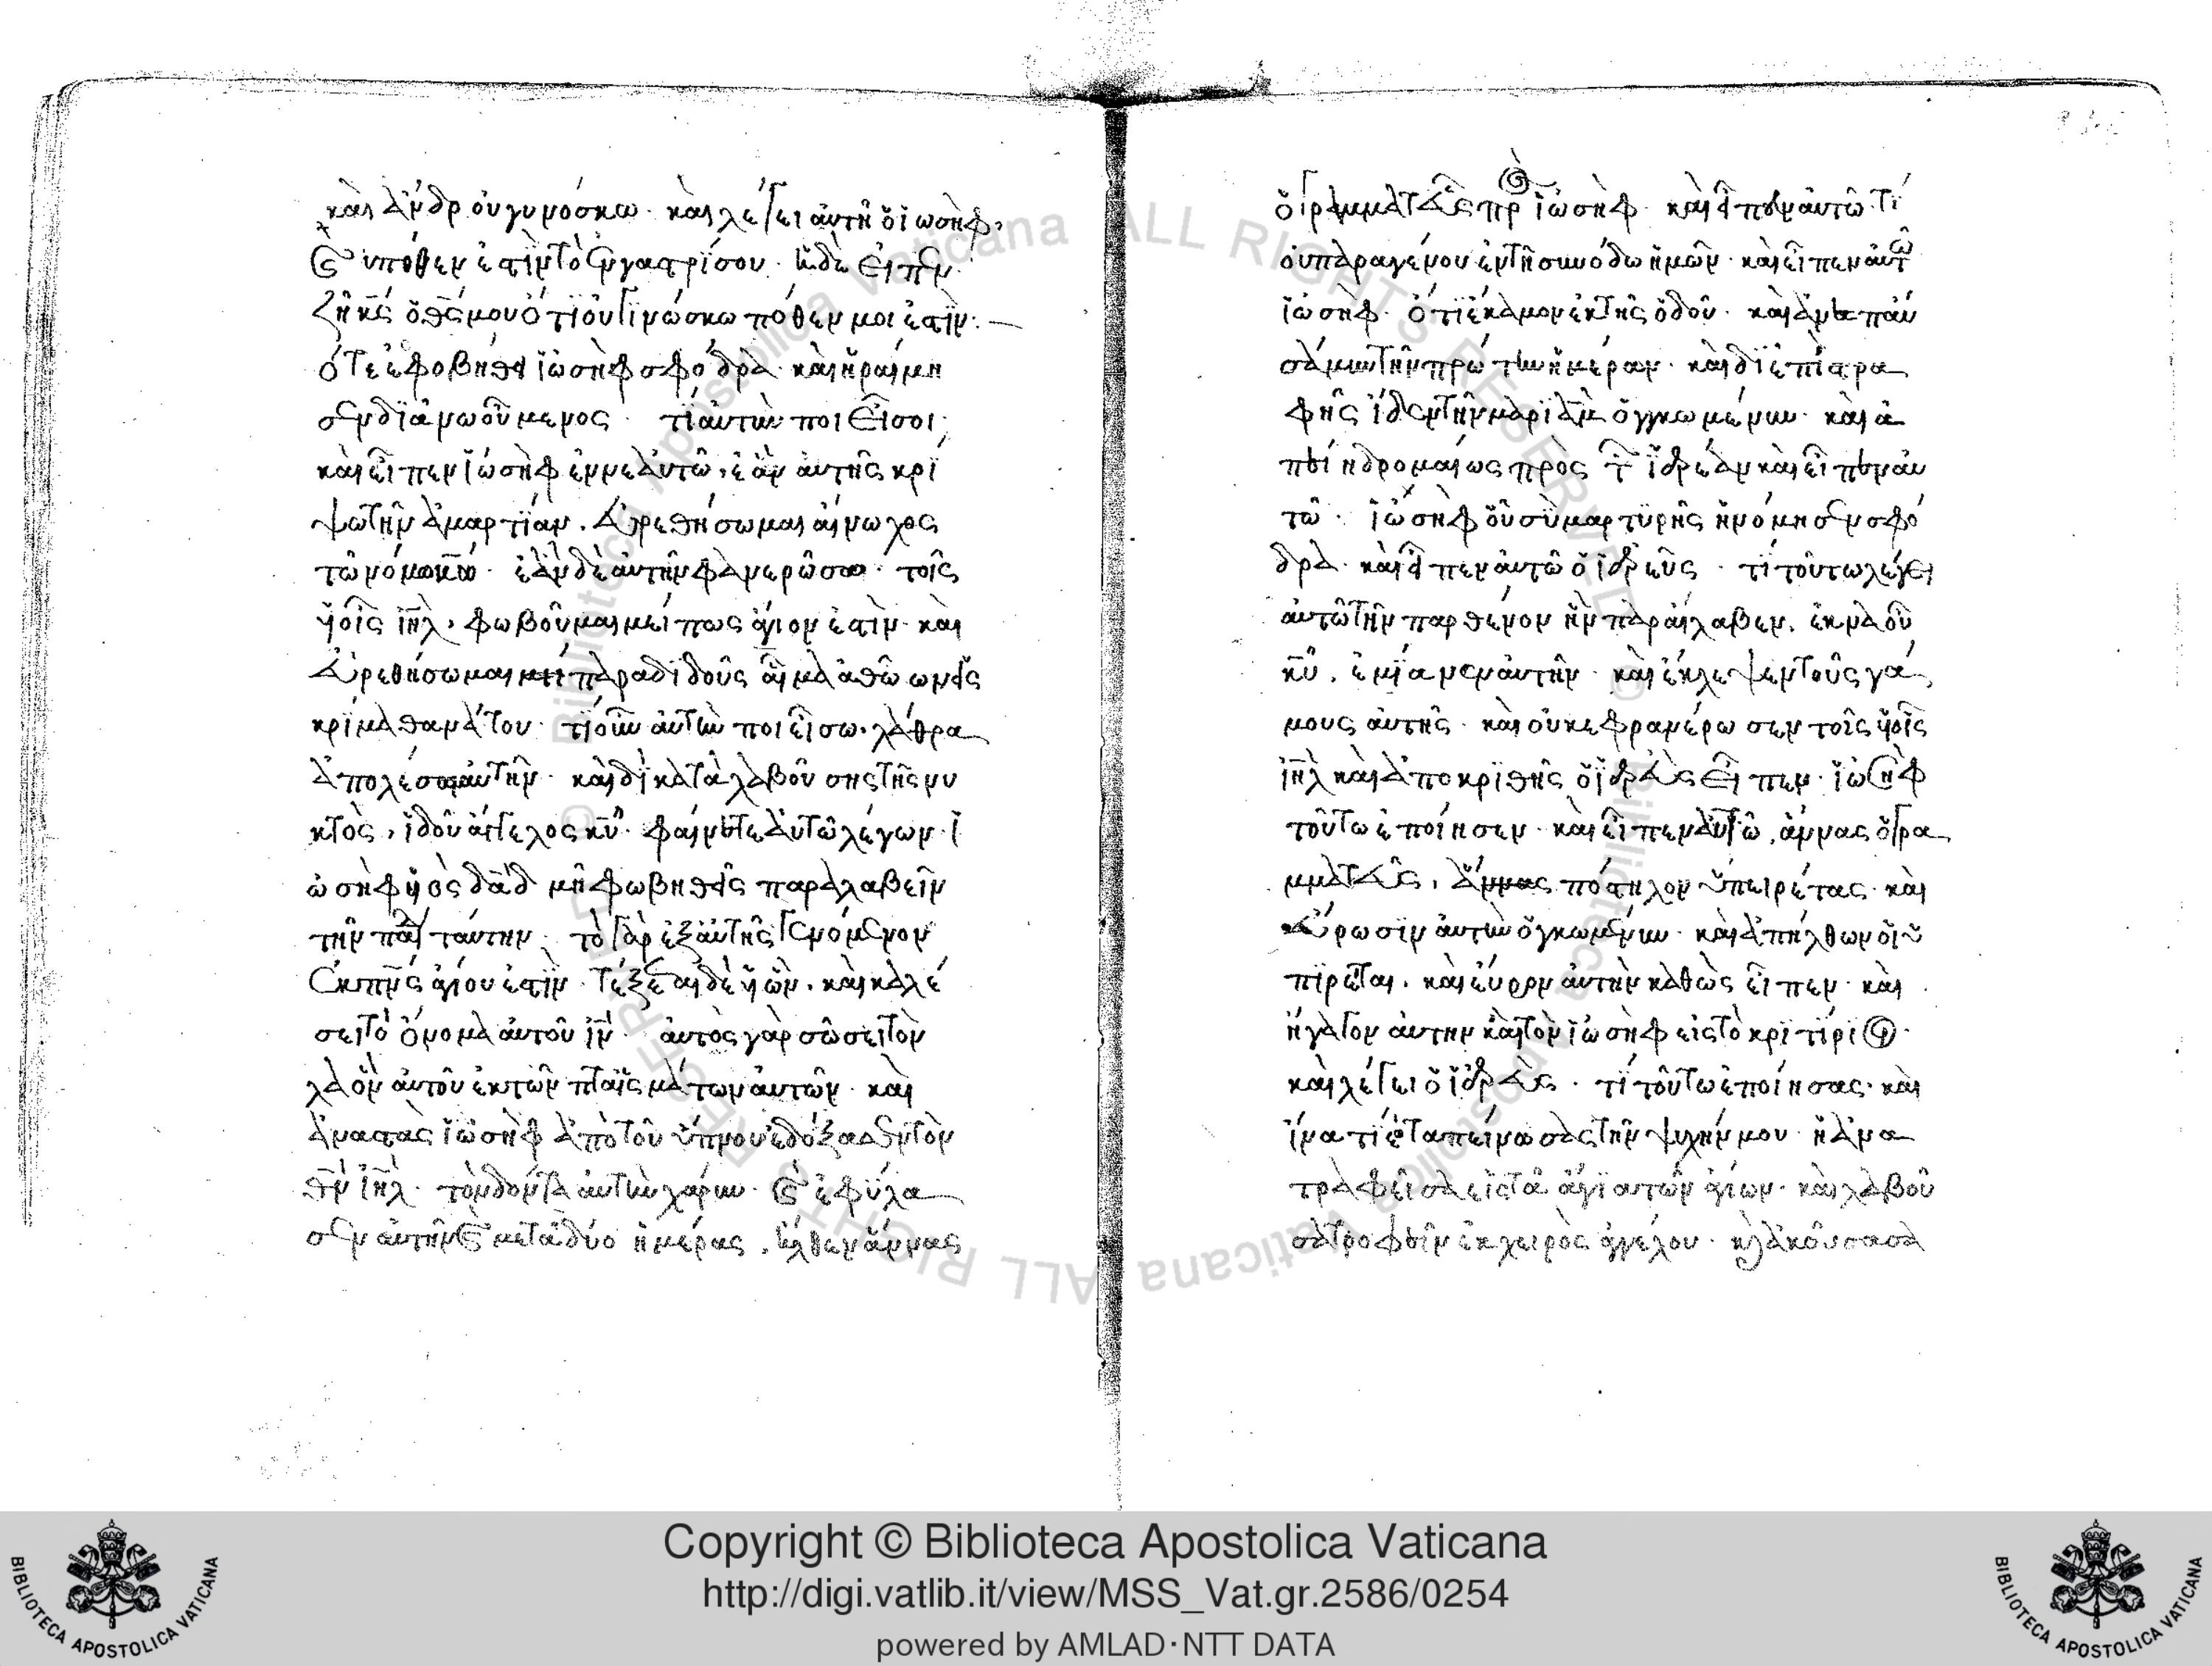 καὶ ἄνδρ οὐ γυνόσκω · καὶ λέγει αὐτῆ ὁ ἰωσὴφ,
καὶ πόθεν ἐστὶν τὸ ἐν γαστρίσου · ἡ δὲ εἶπεν ·
ζῆ κς ὁ θς μου ὅτι οὐ γινώσκω πόθεν μοι ἐστὶν :
ὅτε ἐφοβήθη ἰωσὴφ σφόδρα · καὶ ἤραίμη
σεν διἀνωοῦμενος · τί αὐτὴν ποιείσοι,
καὶ εἶπεν ἰώσὴφ ἐν μεαὐτῶ, ἐὰν αὐτῆς κρί
ψω τὴν ἁμαρτίαν, εὑρεθήσωμαι αίνωχος
τῶ νόμω κυ · ἐὰν δὲ αὐτὴν φανερώσω · τοῖς
υἱοῖς ιηλ, φωβοῦμαι μείπως άγιον ἐστὶν · καὶ
εὑρεθήσωμαι παραδιδοῦς αἷμα ἀθῶων εἰς
κρίμα θανάτου · τί οὖν αὐτὴν ποιεῖσω · λάθρα
ἀπολέσω αὐτὴν · καὶ δὶ κατὰλαβοῦσης τῆς νυ
κτὸς, ἰδοῦ ἄγγελος κυ · φαίνετε αὐτῶ λέγων · ἰ
ώσὴφ υἱὸς δαδ μὴ φωβηθῆς παραλαβεῖν
τὴν παῖδα ταύτην · τὸ γὰρ ἐξ αὐτῆς γενόμενον
ἐκ πνς ἁγίου ἐστὶν · τέξεται δὲ υἱὼν, καὶ καλέ
σει τὸ ὄνομα αὐτοῦ ιν · αὐτὸς γὰρ σώσει τὸν
λαὸν αὐτοῦ ἐκ τῶν πταισμάτων αὐτῶν · καὶ
ἀναστὰς ἰώσὴφ ἀπὸ τοῦ ὕπνου ἐδόξασεν τὸν
θν ιηλ · τὸν δόντα αὐτὴν χάριν · καὶ ἐφύλα
σεν αὐτὴν καὶ μετὰ δύο ἡμέρας, ἦλθεν ἄννας
ὁ γραμματεὺς πρὸς ἰώσὴφ · καὶ εἶπεν αὐτῶ · τί
οὐ παραγένου ἐν τῆ συνόδω ἡμῶν · καὶ εἶπεν αὐτῶ
ἰώσὴφ · ὅτι ἔκαμον ἐκ τῆς ὁδοῦ · καὶ ἀνεπαύ
σάμην τὴν πρώτην ἡμέραν · καὶ δὶ ἐπίστρα
φῆς ἴδεν τὴν μαριὰμ ὀγγκωμένην · καὶ ἀ
πείη δρομαίως πρὸς τὸν ἱερέαν καὶ εἶπεν αὐ
τῶ · ἰώσὴφ οὗ σὺ μαρτυρῆς ἠνόμησεν σφό
δρα · καὶ εἶπεν αὐτῶ ὁ ἱερεῦς · τί τοῦτω λέγει
αὐτῶ τὴν παρθένον ἣν παράιλαβεν, ἐκ ναοῦ
κυ, ἐμίανεν αὐτὴν · καὶ ἔκλεψεν τοὺς γά
μους αὐτῆς · καὶ οὐκ εφρανέρωσεν τοῖς υἱοῖς
ιηλ καὶ ἀποκριθῆς ὁ ἱερεὺς εἶπεν · ἰώσὴφ
τοῦτω ἐποίησεν · καὶ εἶπεν αὐτῶ, ἄννας ὁ γρα
μματεὺς, πόστηλον ὑπειρέτας · καὶ
εὕρωσιν αὐτὴν ὀγκωμένην · καὶ ἀπήλθων οἱ ὑ
πιρέται, καὶ εὗρον αὐτὴν καθὼς εἶπεν · καὶ
ήγαγον αὐτην καὶ τὸν ἰώσὴφ εἰς τὸ κριτίριον ·
καὶ λέγει ὁ ἱερεὺς · τί τοῦτω ἐποίησας · καὶ
ἵνα τί ἐταπείνωσας τὴν ψυχήν μου · ἡ ἀνα
τραφεῖσα εἰς τὰ ἅγια τῶν ἁγίων · καὶ λαβοῦ
σα τροφεὶν ἐκ χειρὸς ἀγγέλου · καὶ ἀκοῦσασα
Copyright © Biblioteca Apostolica Vaticana
http://digi.vatlib.it/view/MSS_Vat.gr.2586/0254
powered by AMLAD·NTT DATA
BIBLIOTECA APOSTOLICA VATICANA
BIBLIOTECA APOSTOLICA VATICANA
© Biblioteca Apostolica Vaticana ALL RIGHTS RESERVED
© Biblioteca Apostolica Vaticana ALL RIGHTS RESERVED